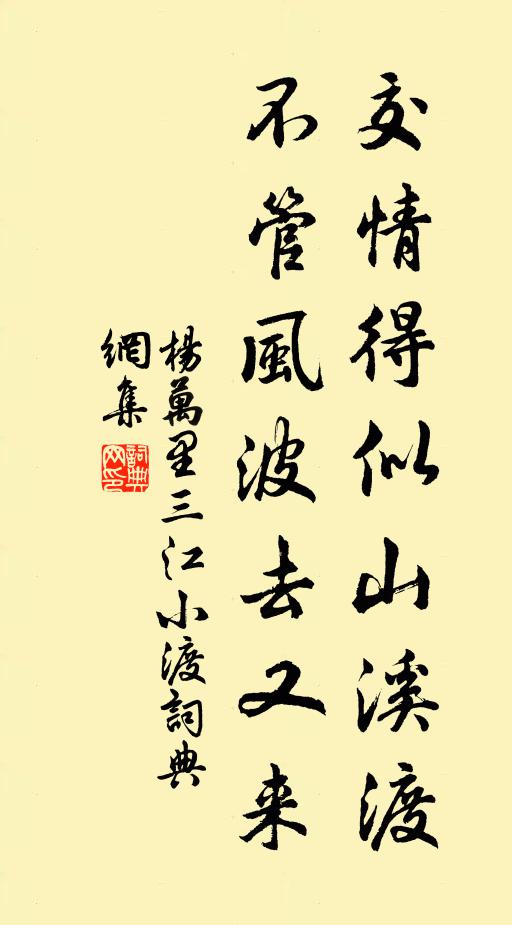 交情得似山溪渡
不管風波去又来
楊萬里三江小渡詞典
網集
詞典網印